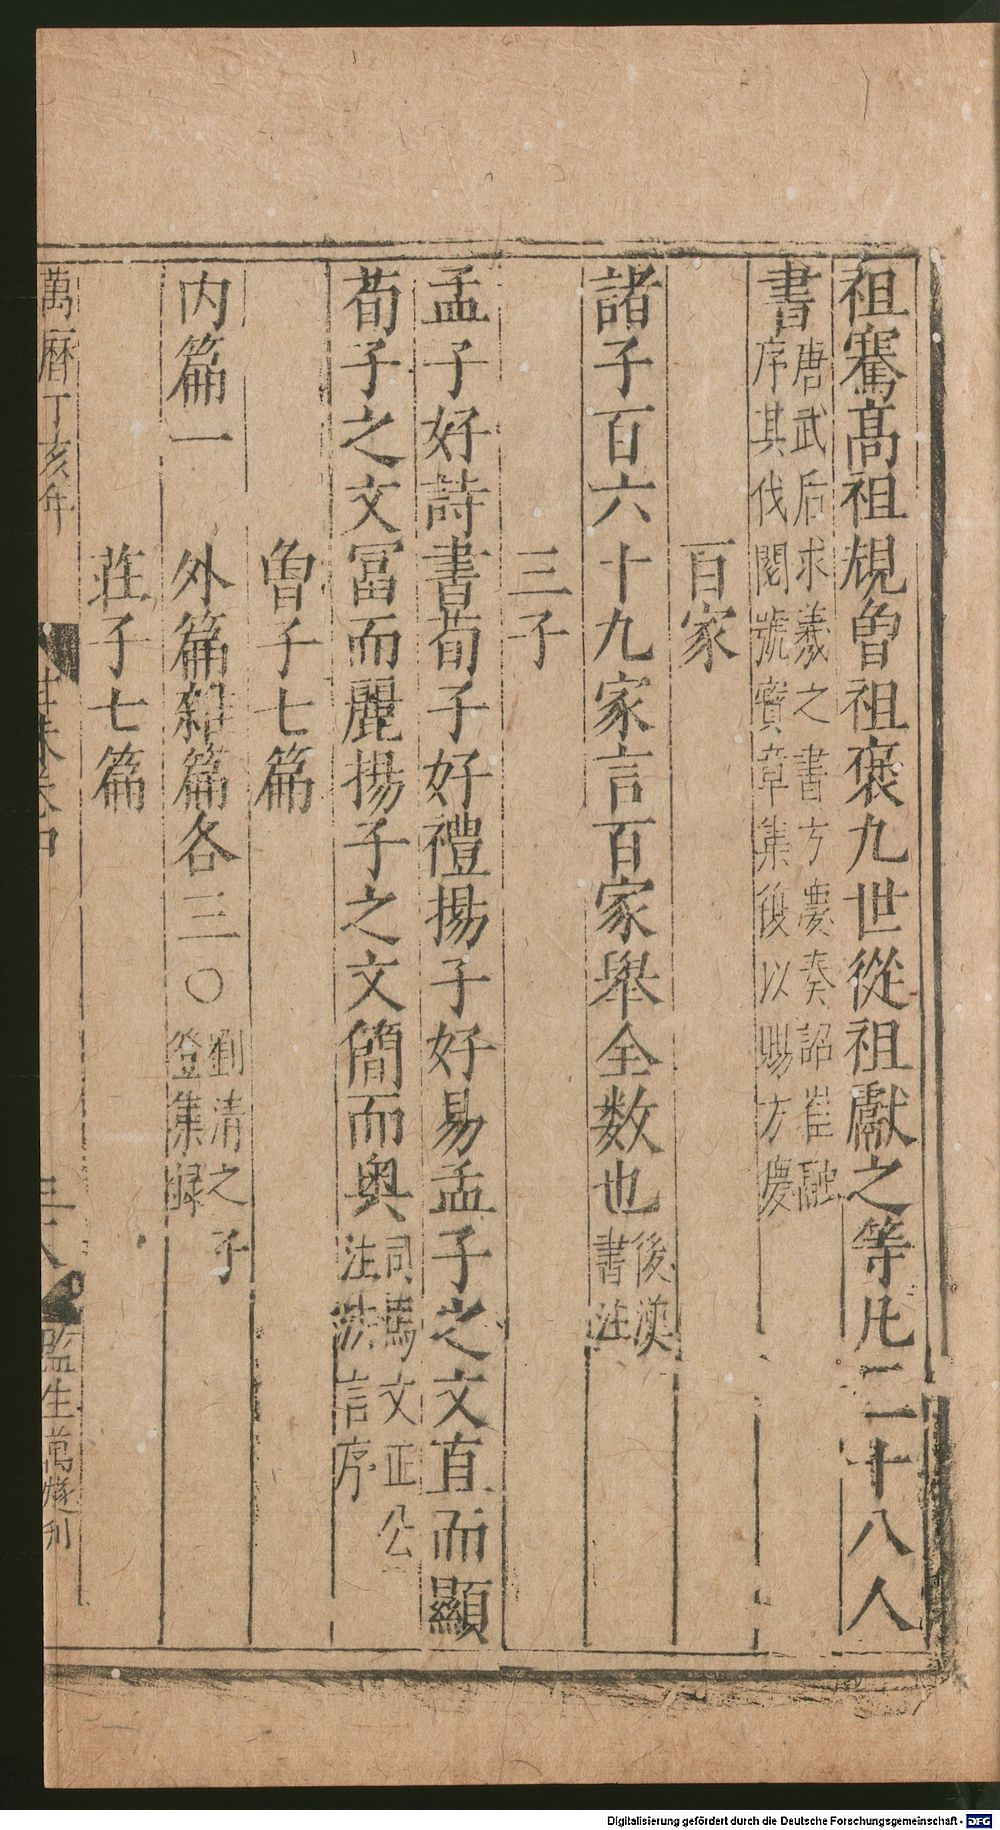 祖騫高祖規曾祖褒九世從祖獻之等凡二十八人
書唐武后求羲之書方慶奏詔崔融
序其伐閱號寶章集復以賜方慶
百家
諸子百六十九家言百家舉全数也後漢
書注
三子
孟子好詩書荀子好禮揚子好易孟子之文直而顯
荀子之文冨而麗揚子之文簡而奥司馬文正公
注法言序
曾子七篇
内篇一 外篇雜篇各三〇劉清之子
登集録
莊子七篇
萬曆丁亥年 監生萬燧刊
Digitalisierung gefördert durch die Deutsche Forschungsgemeinschaft - DFG